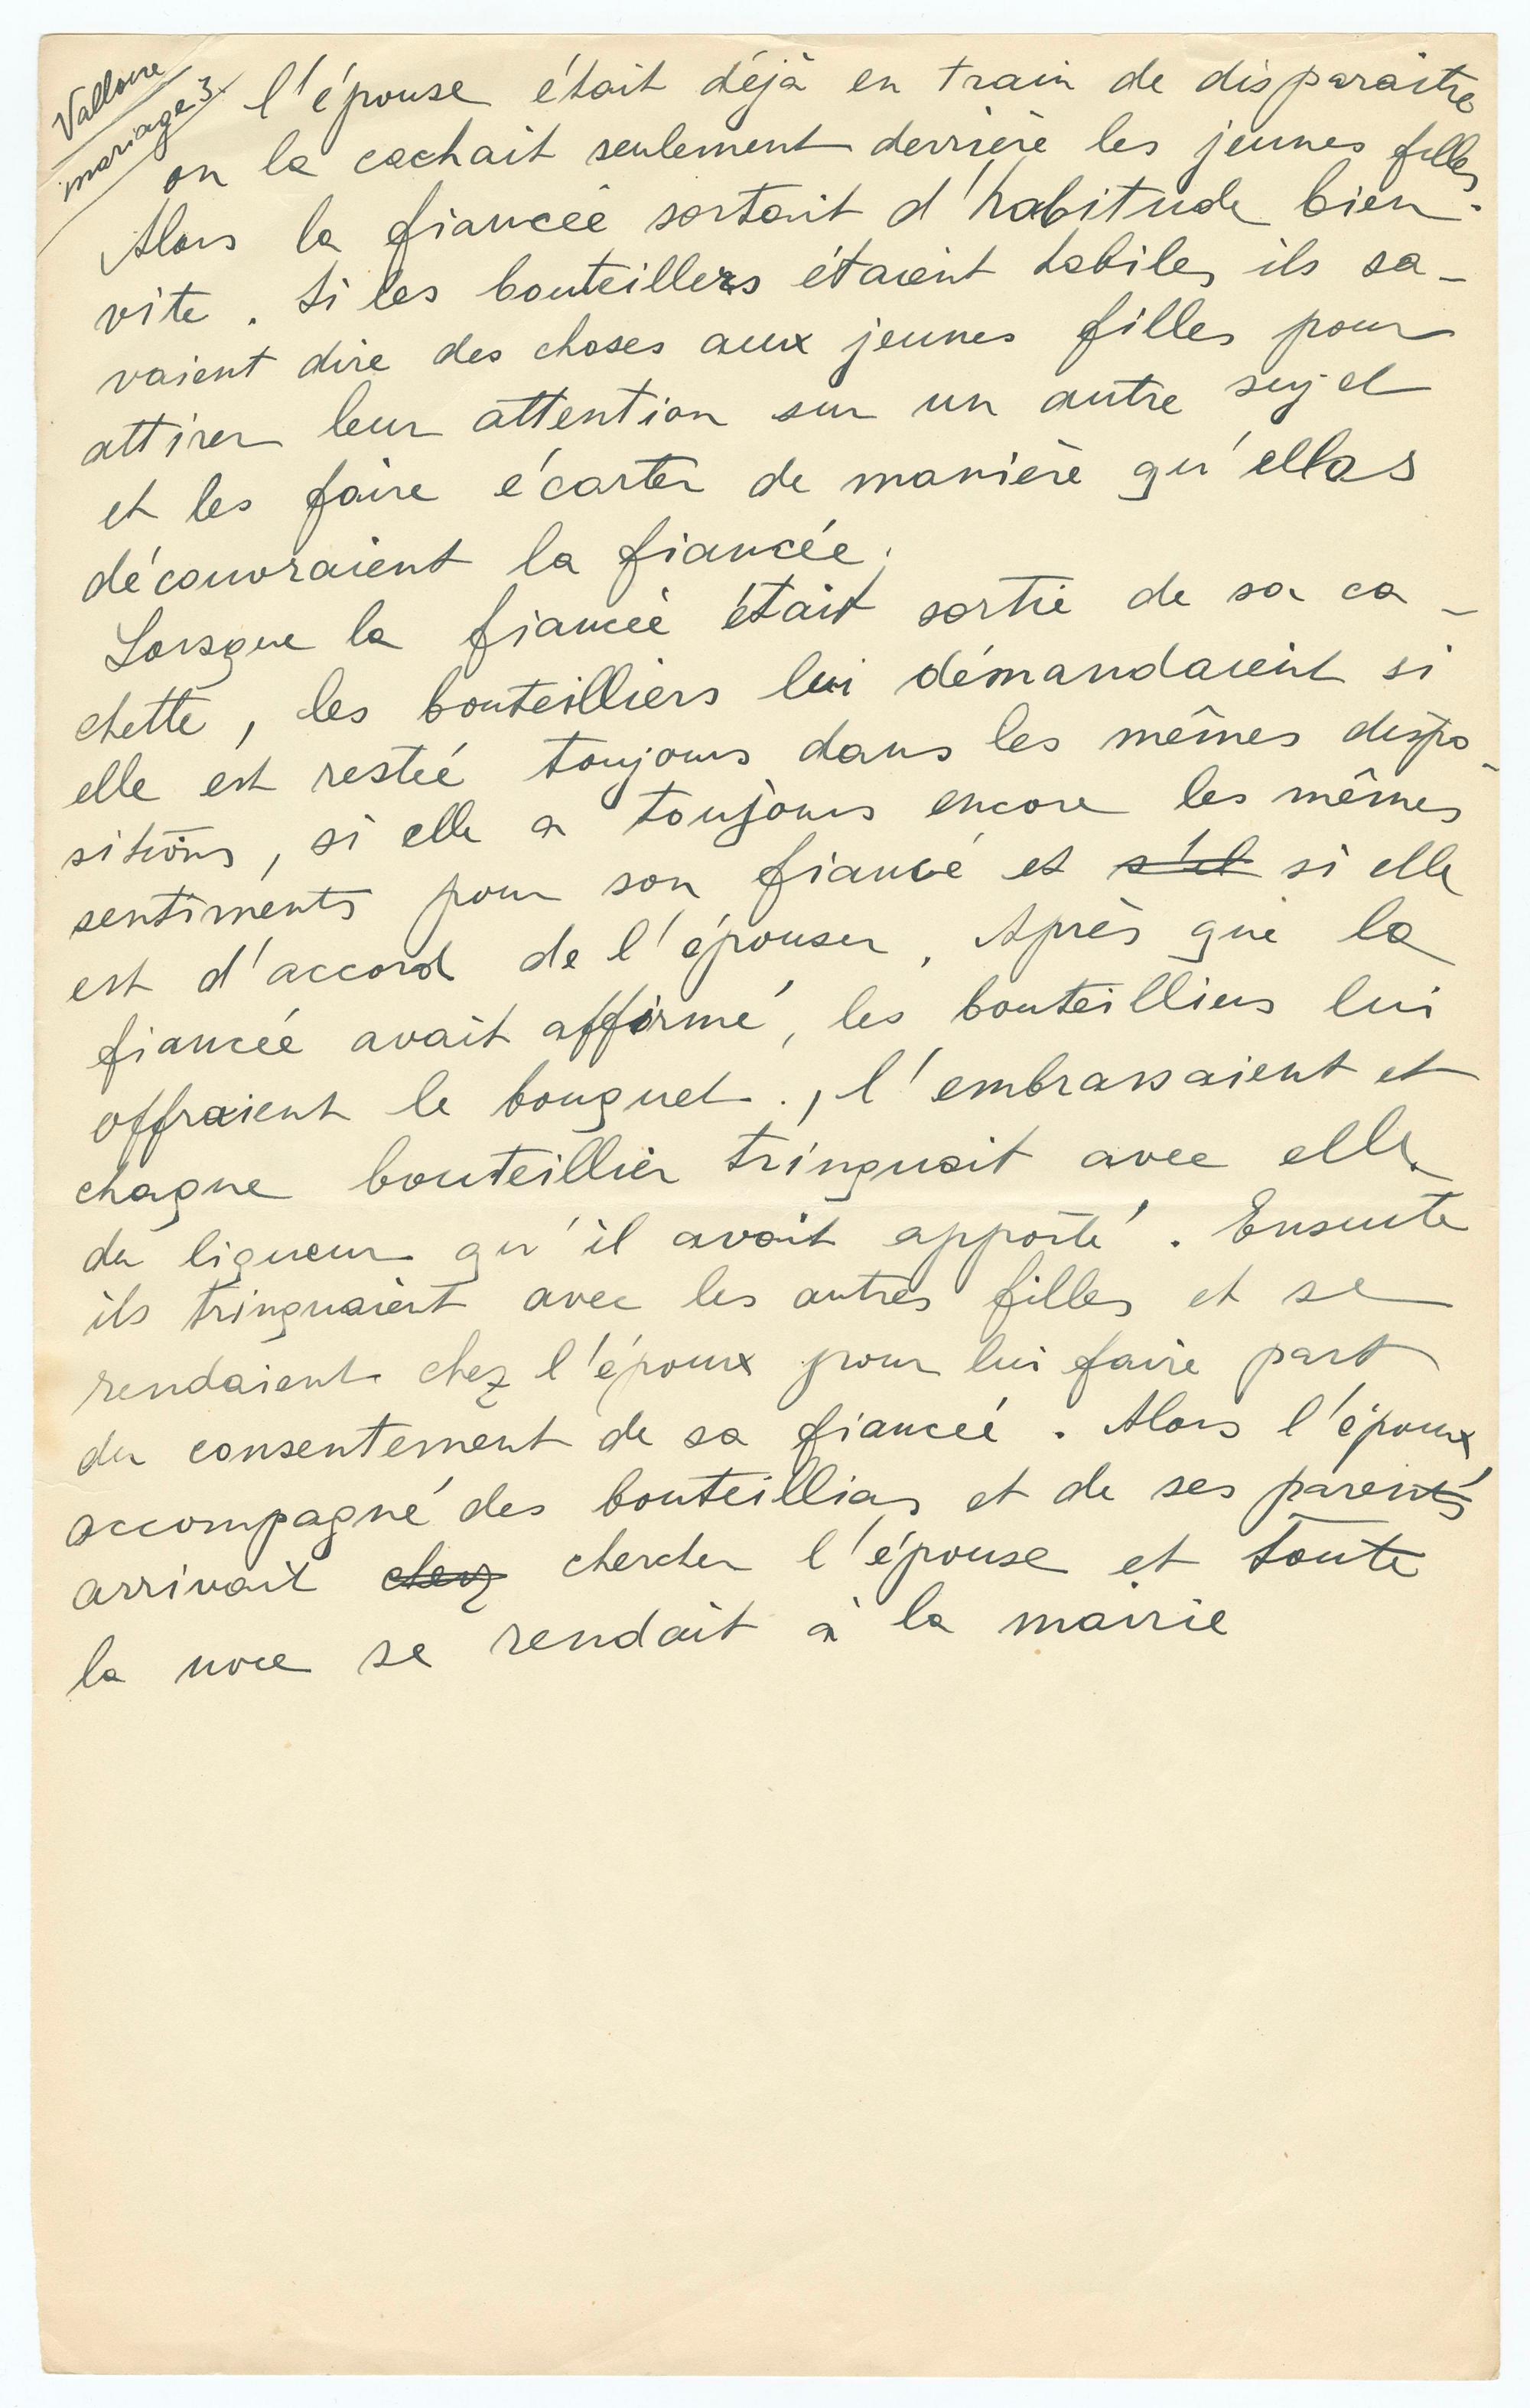 Valloire
mariage 3.
l'épouse était déjà en train de disparaitre
on la cachait seulement derrière les jeunes filles
Alors la fiancée sortait d'habitude bien
vite. Si les bouteillers étaient habiles ils sa-
vaient dire des choses aux jeunes filles pour
attirer leur attention sur un autre sujet
et les faire écarter de manière qu'elles
découvraient la fiancée.
Lorsque la fiancée était sortie de sa ca-
chette, les bouteilliers lui démandaient si
elle est restée toujours dans les mêmes dispo-
sitions, si elle a toujours encore les mêmes
sentiments pour son fiancé et s'il si elle
est d'accord de l'épouser. Après que la
fiancée avait affirmé, les bouteilliers lui
offraient le bouquet., l'embrassaient et
chaque bouteillier trinquait avec elle
du liqueur qu'il avait apporté. Ensuite
ils trinquaient avec les autres filles et se
rendaient chez l'époux pour lui faire part
du consentement de sa fiancée. Alors l'époux
accompagné des bouteilliers et de ses parents
arrivait chez chercher l'épouse et toute
la noce se rendait à la mairie